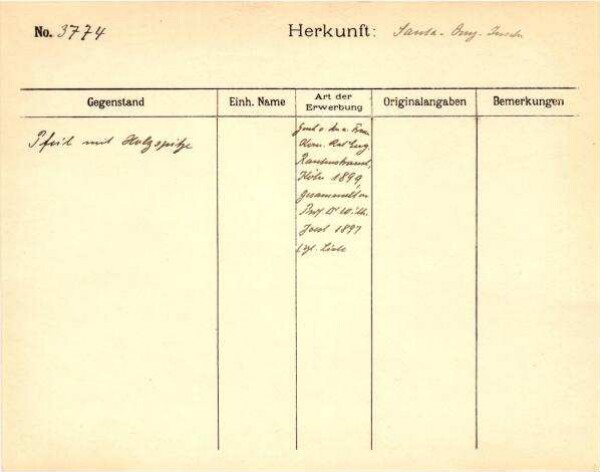 No. 3774 Herkunft: Santa-Cruz-Inseln
Gegenstand Einh. Name Art der Erwerbung Originalangaben Bemerkungen
Pfeil mit Holzspitze
Gesch. v. Frau
Kom. Rat Eug.
Rautenstrauch,
Köln 1899,
gesammelt v.
Prof. Dr Wilh.
Joest 1897
Liste